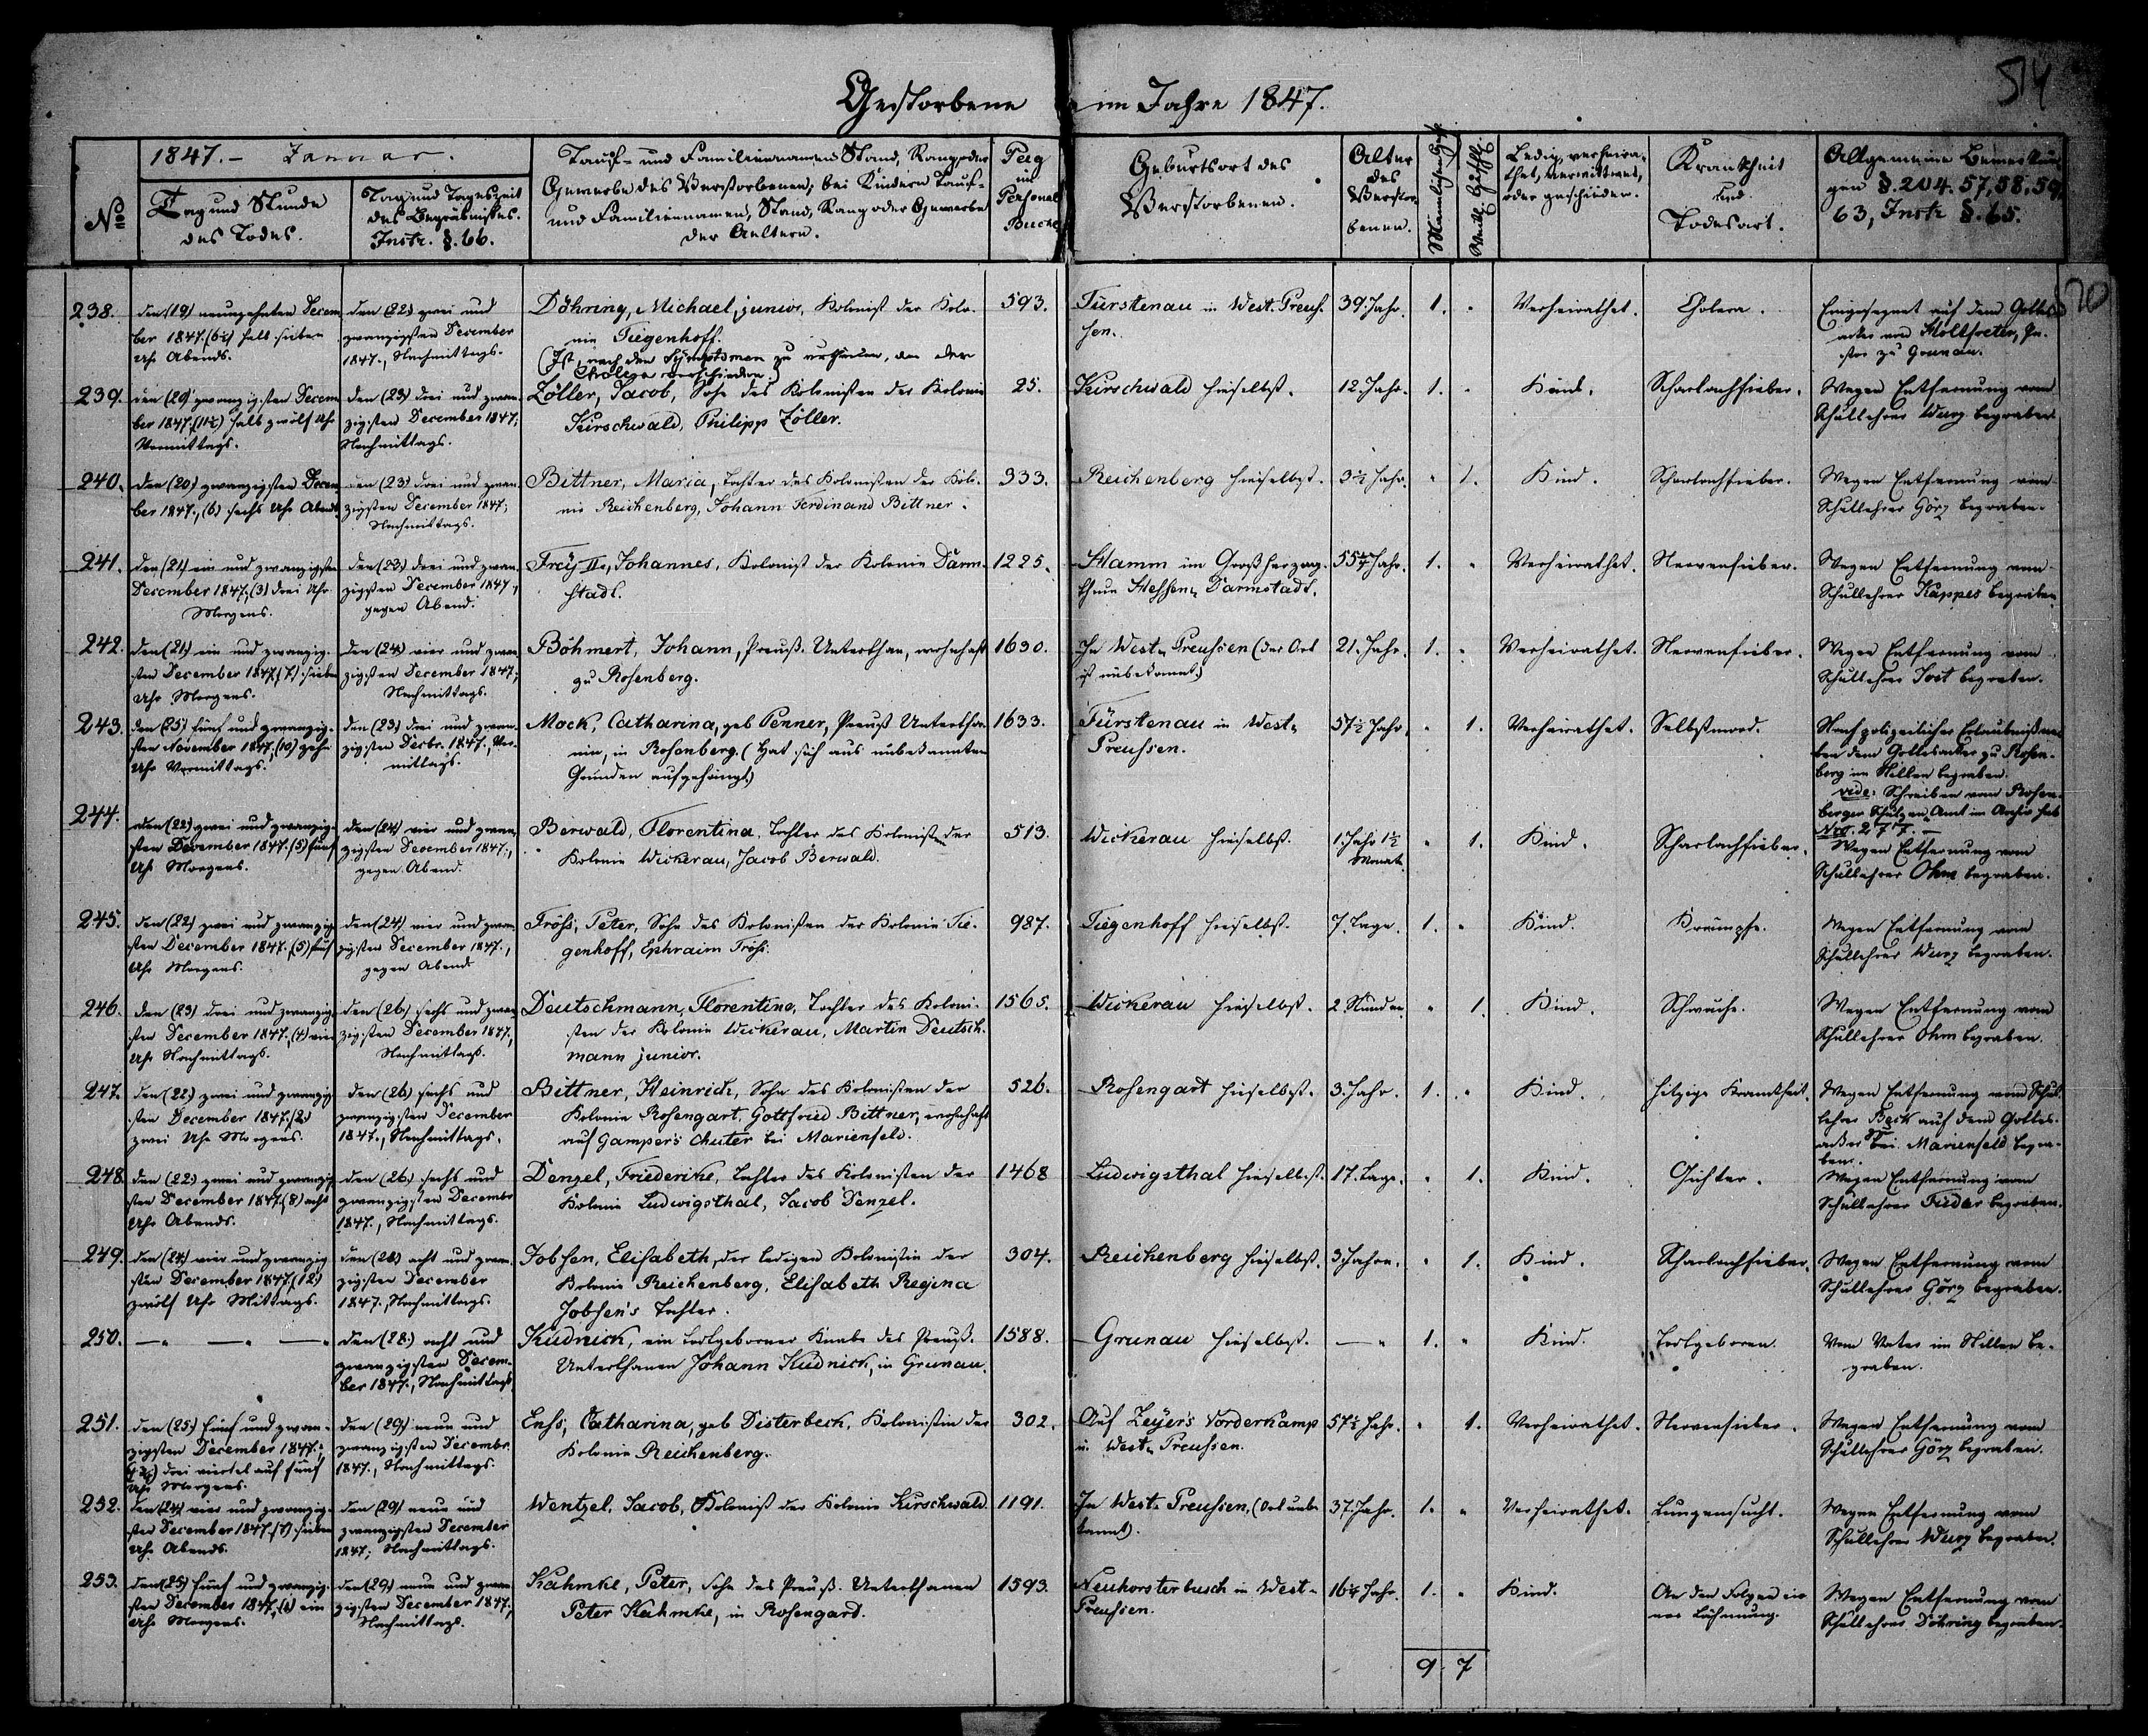 514
Gestorbene im Jahre 1847.
Nº
1847. – Januar.
Tag und Stunde
des Todes.
Tag und Tageszeit
des Begräbnisses.
Instr. §. 66.
Tauf- und Familiennamen, Stand, Rang oder
Gewerbe des Verstorbenen, bei Kindern Tauf-
und Familiennamen, Stand, Rang oder Gewerbe
der Aeltern.
Pag
im
Personal
Buche
Geburtsort des
Verstorbenen.
Alter
des
Verstor-
benen.
Ledig, verheira-
thet, verwittwet,
oder geschieden.
Krankheit
und
Todesart.
Allgemeine Bemerkun-
gen §. 204. 57, 58, 59,
63, Instr §. 65.
238.
den (19) neunzehnten Decem
ber 1847. (6½) halb sieben
Uhr Abends.
den (22) zwei und
zwanzigsten December
1847., Nachmittags.
Döhring, Michael, junior, Kolonist der Kolo-
nie Tiegenhoff.
(Ist, nach den Symptomen zu urtheilen, an der
Cholera verschieden.)
593.
Fürstenau in West Preus-
sen.
39. Jahr.
1.
Verheirathet.
Cholera.
Eingesegnet auf dem Gottes
acker von Holtfreter, Pa-
stor zu Grunau.
239.
den (20) zwanzigsten Decem
ber 1847. (11½) halb zwölf Uhr
Vormittags.
den (23) drei und zwan-
zigsten December 1847;
Nachmittags.
Zöller, Jacob, Sohn des Kolonisten der Kolonie
Kirschwald, Philipp Zöller.
25.
Kirschwald hieselbst.
12. Jahr.
1.
Kind.
Scharlachfieber.
Wegen Entfernung vom
Schullehrer Wurz begraben.
240.
den (20) zwanzigsten Decem
ber 1847., (6) sechs Uhr Abends
den (23) drei und zwan-
zigsten December 1847;
Nachmittags.
Bittner, Maria, Tochter des Kolonisten der Kolo-
nie Reichenberg, Johann Ferdinand Bittner.
333.
Reichenberg hieselbst.
3½ Jahr.
1.
Kind.
Scharlachfieber.
Wegen Entfernung vom
Schullehrer Görz begraben.
241.
den (21) ein und zwanzigsten
December 1847., (3) drei Uhr
Morgens.
den (23) drei und zwan-
zigsten December 1847.,
gegen Abend.
Frey II, Johannes, Kolonist der Kolonie Darm-
stadt.
1225.
Hamm im Großherzog-
thum Hessen Darmstadt.
55¾ Jahr.
1.
Verheirathet.
Nervenfieber.
Wegen Entfernung vom
Schullehrer Kappes begraben
242.
den (21) ein und zwanzig-
sten December 1847, (7) sieben
Uhr Morgens.
den (24) vier und zwan-
zigsten December 1847;
Nachmittags.
Böhmert, Johann, Preuß. Unterthan, wohnhaft
zu Rosenberg.
1630.
In West Preussen (der Ort
ist unbekannt.)
21. Jahr.
1.
Verheirathet.
Nervenfieber.
Wegen Entfernung vom
Schullehrer Jost begraben.
243.
den (25) fünf und zwanzig-
sten November 1847, (10) zehn
Uhr Vormittags.
den (23) drei und zwan-
zigsten Decbr. 1847., Vor-
mittags.
Mock, Catharina, geb Penner, Preuß Untertha-
nin, in Rosenberg. (Hat sich aus unbekannten
Gründen aufgehängt.)
1633.
Fürstenau in West
Preussen.
57½ Jahr.
1.
Verheirathet.
Selbstmord.
Nach polizeilicher Erlaubniß ne
ben dem Gottesacker zu Rosen-
berg im Stillen begraben.
vide: Schreiben vom Rosen-
berger Schulzen Amt im Archiv sub
Nro. 277. –
244.
den (22) zwei und zwanzig-
sten December 1847. (5) fünf
Uhr Morgens.
den (24) vier und zwan-
zigsten December 1847.,
gegen Abend.
Berwald, Florentina, Tochter des Kolonisten der
Kolonie Wickerau, Jacob Berwald.
513.
Wickerau hieselbst.
1. Jahr 1½
Monate
1.
Kind.
Scharlachfieber.
Wegen Entfernung vom
Schullehrer Ohm begraben.
245.
den (22) zwei und zwanzig-
sten December 1847. (5) fünf
Uhr Morgens.
den (24) vier und zwan-
zigsten December 1847.,
gegen Abend
Fröss, Peter, Sohn des Kolonisten der Kolonie Tie-
genhoff, Ephraim Fröss.
987.
Tiegenhoff hieselbst.
7. Tage.
1.
Kind.
Krämpfe.
Wegen Entfernung vom
Schullehrer Wurz begraben.
246.
den (23) drei und zwanzig-
sten December 1847., (4) vier
Uhr Nachmittags.
den (26) sechs und zwan
zigsten December 1847.,
Nachmittags.
Deutschmann, Florentina, Tochter des Koloni-
sten der Kolonie Wickerau, Martin Deutsch-
mann junior.
1565.
Wickerau hieselbst.
2. Stunden
1.
Kind.
Schwäche.
Wegen Entfernung vom
Schullehrer Ohm begraben.
247.
den (22) zwei und zwanzig-
sten December 1847. (2)
zwei Uhr Morgens.
den (26) sechs und
zwanzigsten December
1847., Nachmittags.
Bittner, Heinrich, Sohn des Kolonisten der
Kolonie Rosengart, Gottfried Bittner, wohnhaft
auf Gamper's Chuter bei Marienfeld.
526.
Rosengart hieselbst.
3. Jahr.
1.
Kind.
hitzige Krankheit.
Wegen Entfernung vom Schul-
lehrer Beck auf dem Gottes-
acker bei Marienfeld begra-
ben.
248.
den (22) zwei und zwanzig
sten December 1847. (8) acht
Uhr Abends.
den (26) sechs und
zwanzigsten December
1847., Nachmittags.
Denzel, Friederike, Tochter des Kolonisten der
Kolonie Ludwigsthal, Jacob Denzel.
1468
Ludwigsthal hieselbst.
17. Tage.
1.
Kind.
Gichter.
Wegen Entfernung vom
Schullehrer begraben.
249.
den (24) vier und zwanzig
sten December 1847, (12)
zwölf Uhr Mittags.
den (28) acht und zwan-
zigsten December
1847., Nachmittags.
Jobsen, Elisabeth, der ledigen Kolonistin der
Kolonie Reichenberg, Elisabeth Regina
Jobsen's Tochter.
304.
Reichenberg hieselbst.
3 Jahre.
1.
Kind.
Scharlachfieber.
Wegen Entfernung vom
Schullehrer Görz begraben.
250.
den (28.) acht und
zwanzigsten Decem-
ber 1847., Nachmittags
Kudnick, ein todtgeborner Knabe des Preuß.
Unterthanen Johann Kudnick, in Grunau.
1588.
Grunau hieselbst.
1.
Kind.
Todtgeboren.
Vom Vater im Stillen be-
graben.
251.
den (25) fünf und zwan-
zigsten December 1847.,
(4¾) drei viertel auf fünf
Uhr Morgens.
den (29) neun und
zwanzigsten Decembr.
1847., Nachmittags.
Enss, Catharina, geb Disterbeck, Kolonistin der
Kolonie Reichenberg.
302.
Auf Zeyer's Vorderkamp
in West Preussen.
57½ Jahr.
1.
Verheirathet.
Nervenfieber.
Wegen Entfernung vom
Schullehrer Görz begraben.
252.
den (24) vier und zwanzig-
sten December 1847. (7) sieben
Uhr Abends.
den (29) neun und
zwanzigsten December
1847; Nachmittags.
Wentzel, Jacob, Kolonist der Kolonie Kirschwald.
1191.
In West Preussen, (Ort unbe
kannt).
37. Jahr.
1.
Verheirathet.
Lungensucht.
Wegen Entfernung vom
Schullehrer Wurz begraben.
253.
den (25) fünf und zwanzig-
sten December 1847, (1) ein
Uhr Morgens.
den (29) neun und zwan
zigsten December 1847.,
Nachmittags.
Kahmke, Peter, Sohn des Preuß. Unterthanen
Peter Kahmke, in Rosengart.
1593.
Neuhorsterbusch in West-
Preussen.
16¼ Jahr.
1.
Kind.
An den Folgen ei-
ner Lähmung.
Wegen Entfernung vom
Schullehrer Döhring begraben.
9. 7